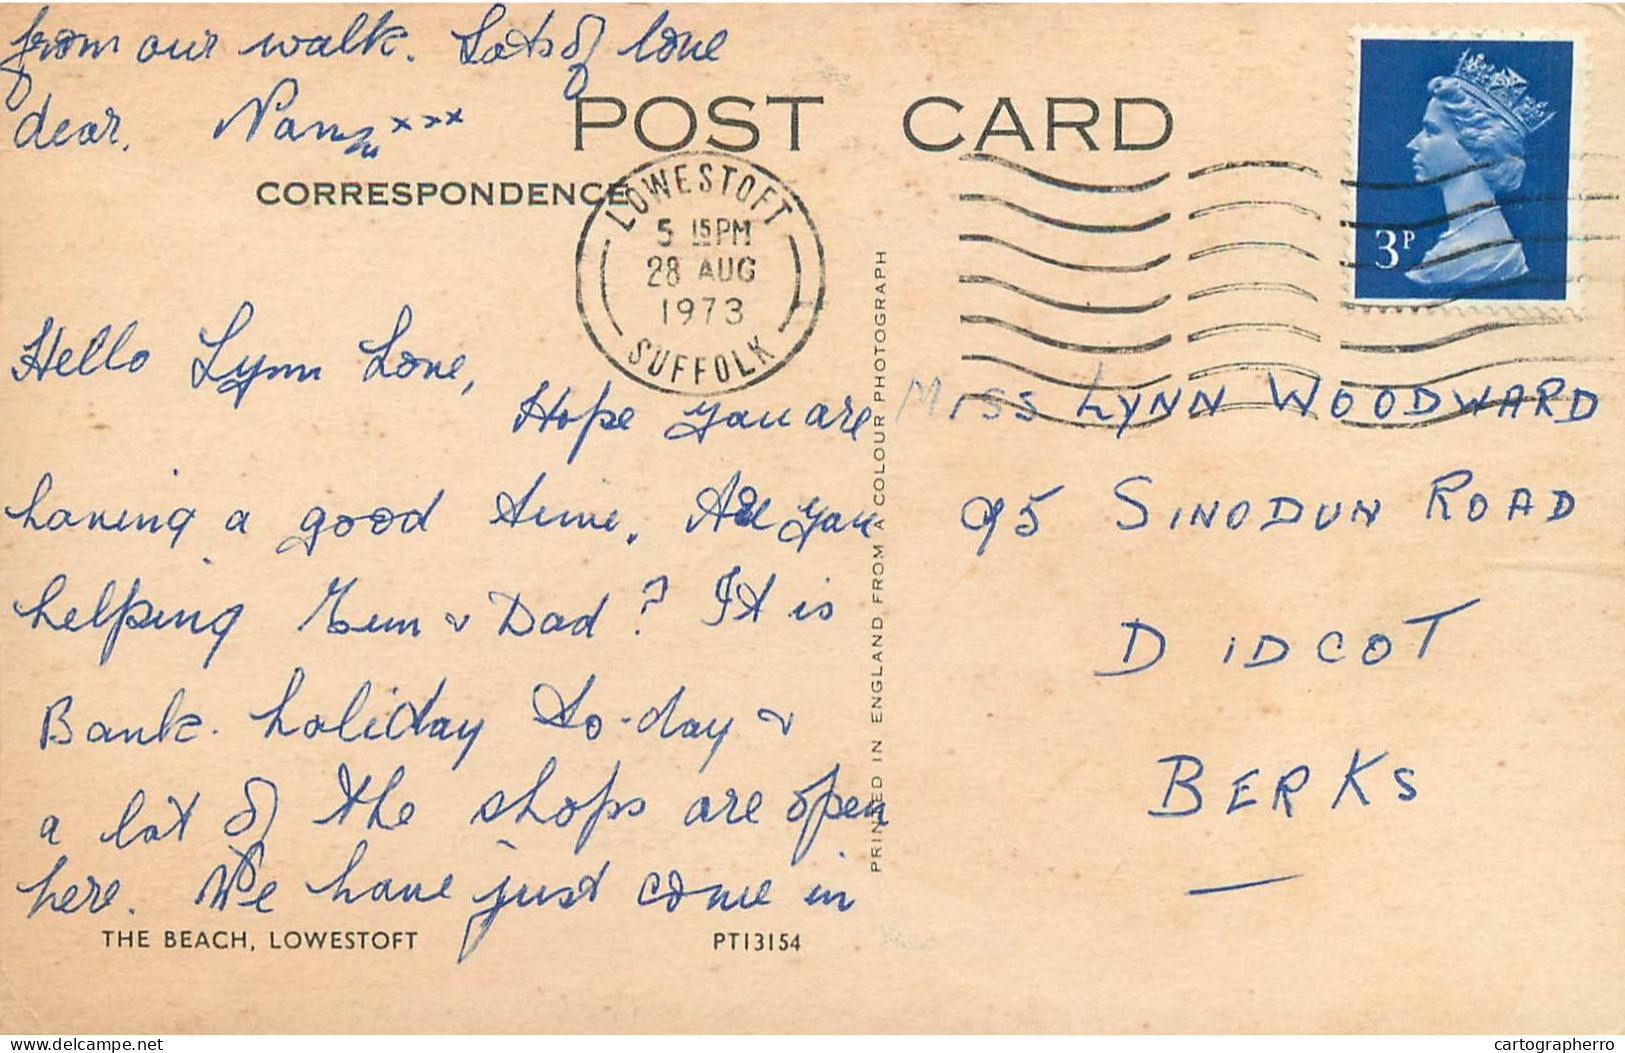 from our walk. Lots of love
dear. Nan xxx
POST CARD
CORRESPONDENCE
LOWESTOFT
5 15 PM
28 AUG
1973
SUFFOLK
3P
Hello Lynn Love,
Hope you are
having a good time. Are you
helping Mum & Dad? It is
Bank holiday to-day &
a lot of the shops are open
here. We have just come in
THE BEACH, LOWESTOFT
PT13154
PRINTED IN ENGLAND FROM A COLOUR PHOTOGRAPH
MISS LYNN WOODWARD
95 SINODUN ROAD
DIDCOT
BERKS
delcampe.net
cartographerro